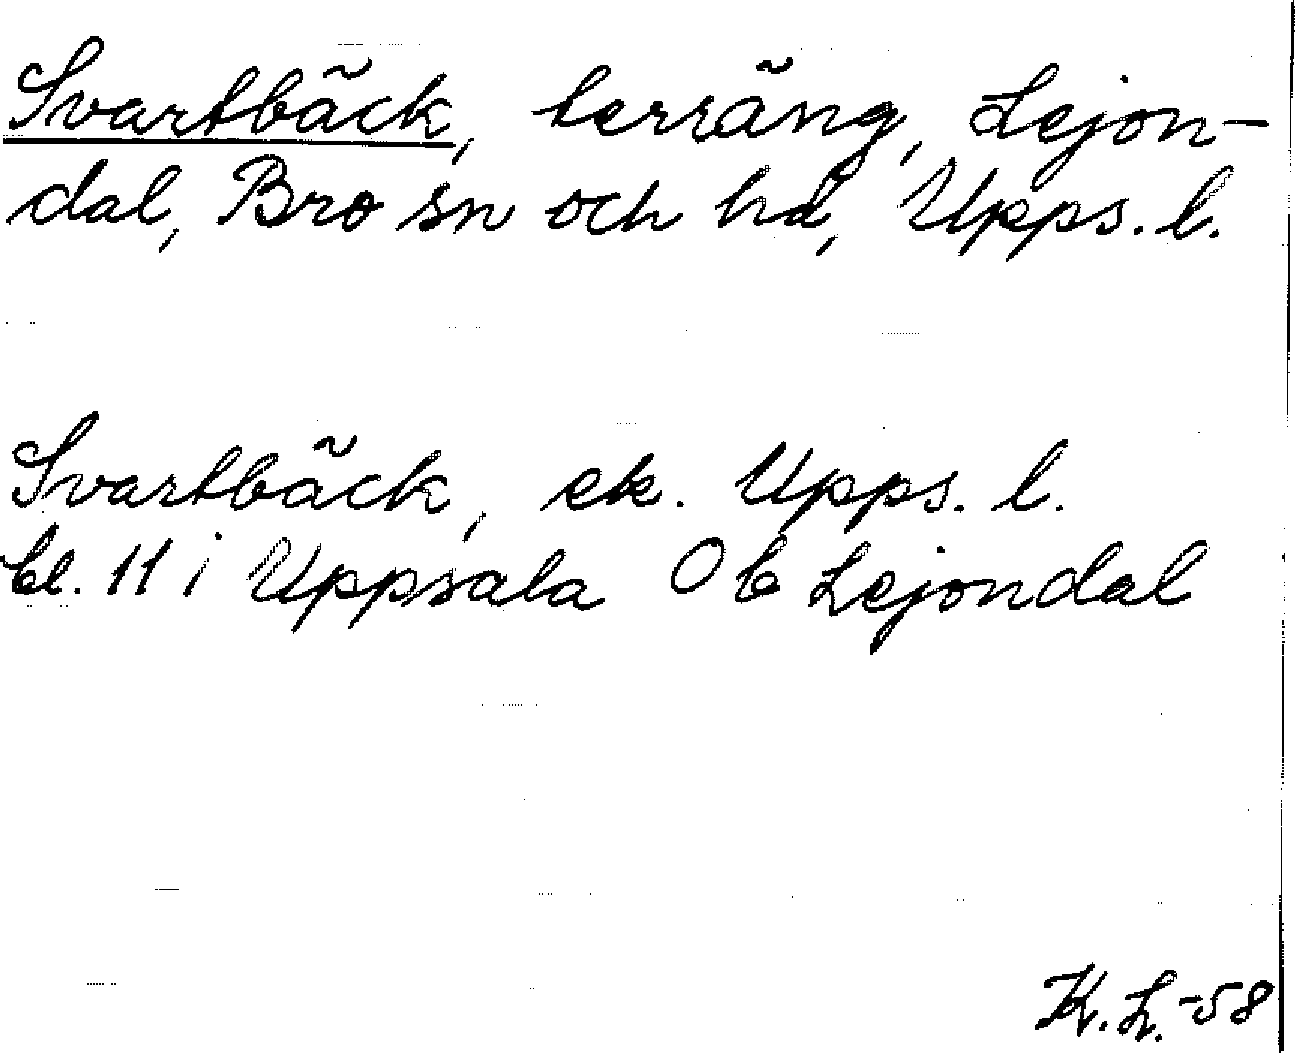 Svartbäck, terräng, Lejon-
dal, Bro sn och hd, Upps. l.
Svartbäck, ek. Upps. l.
bl. 11 i Uppsala Ob Lejondal
K. L. -58